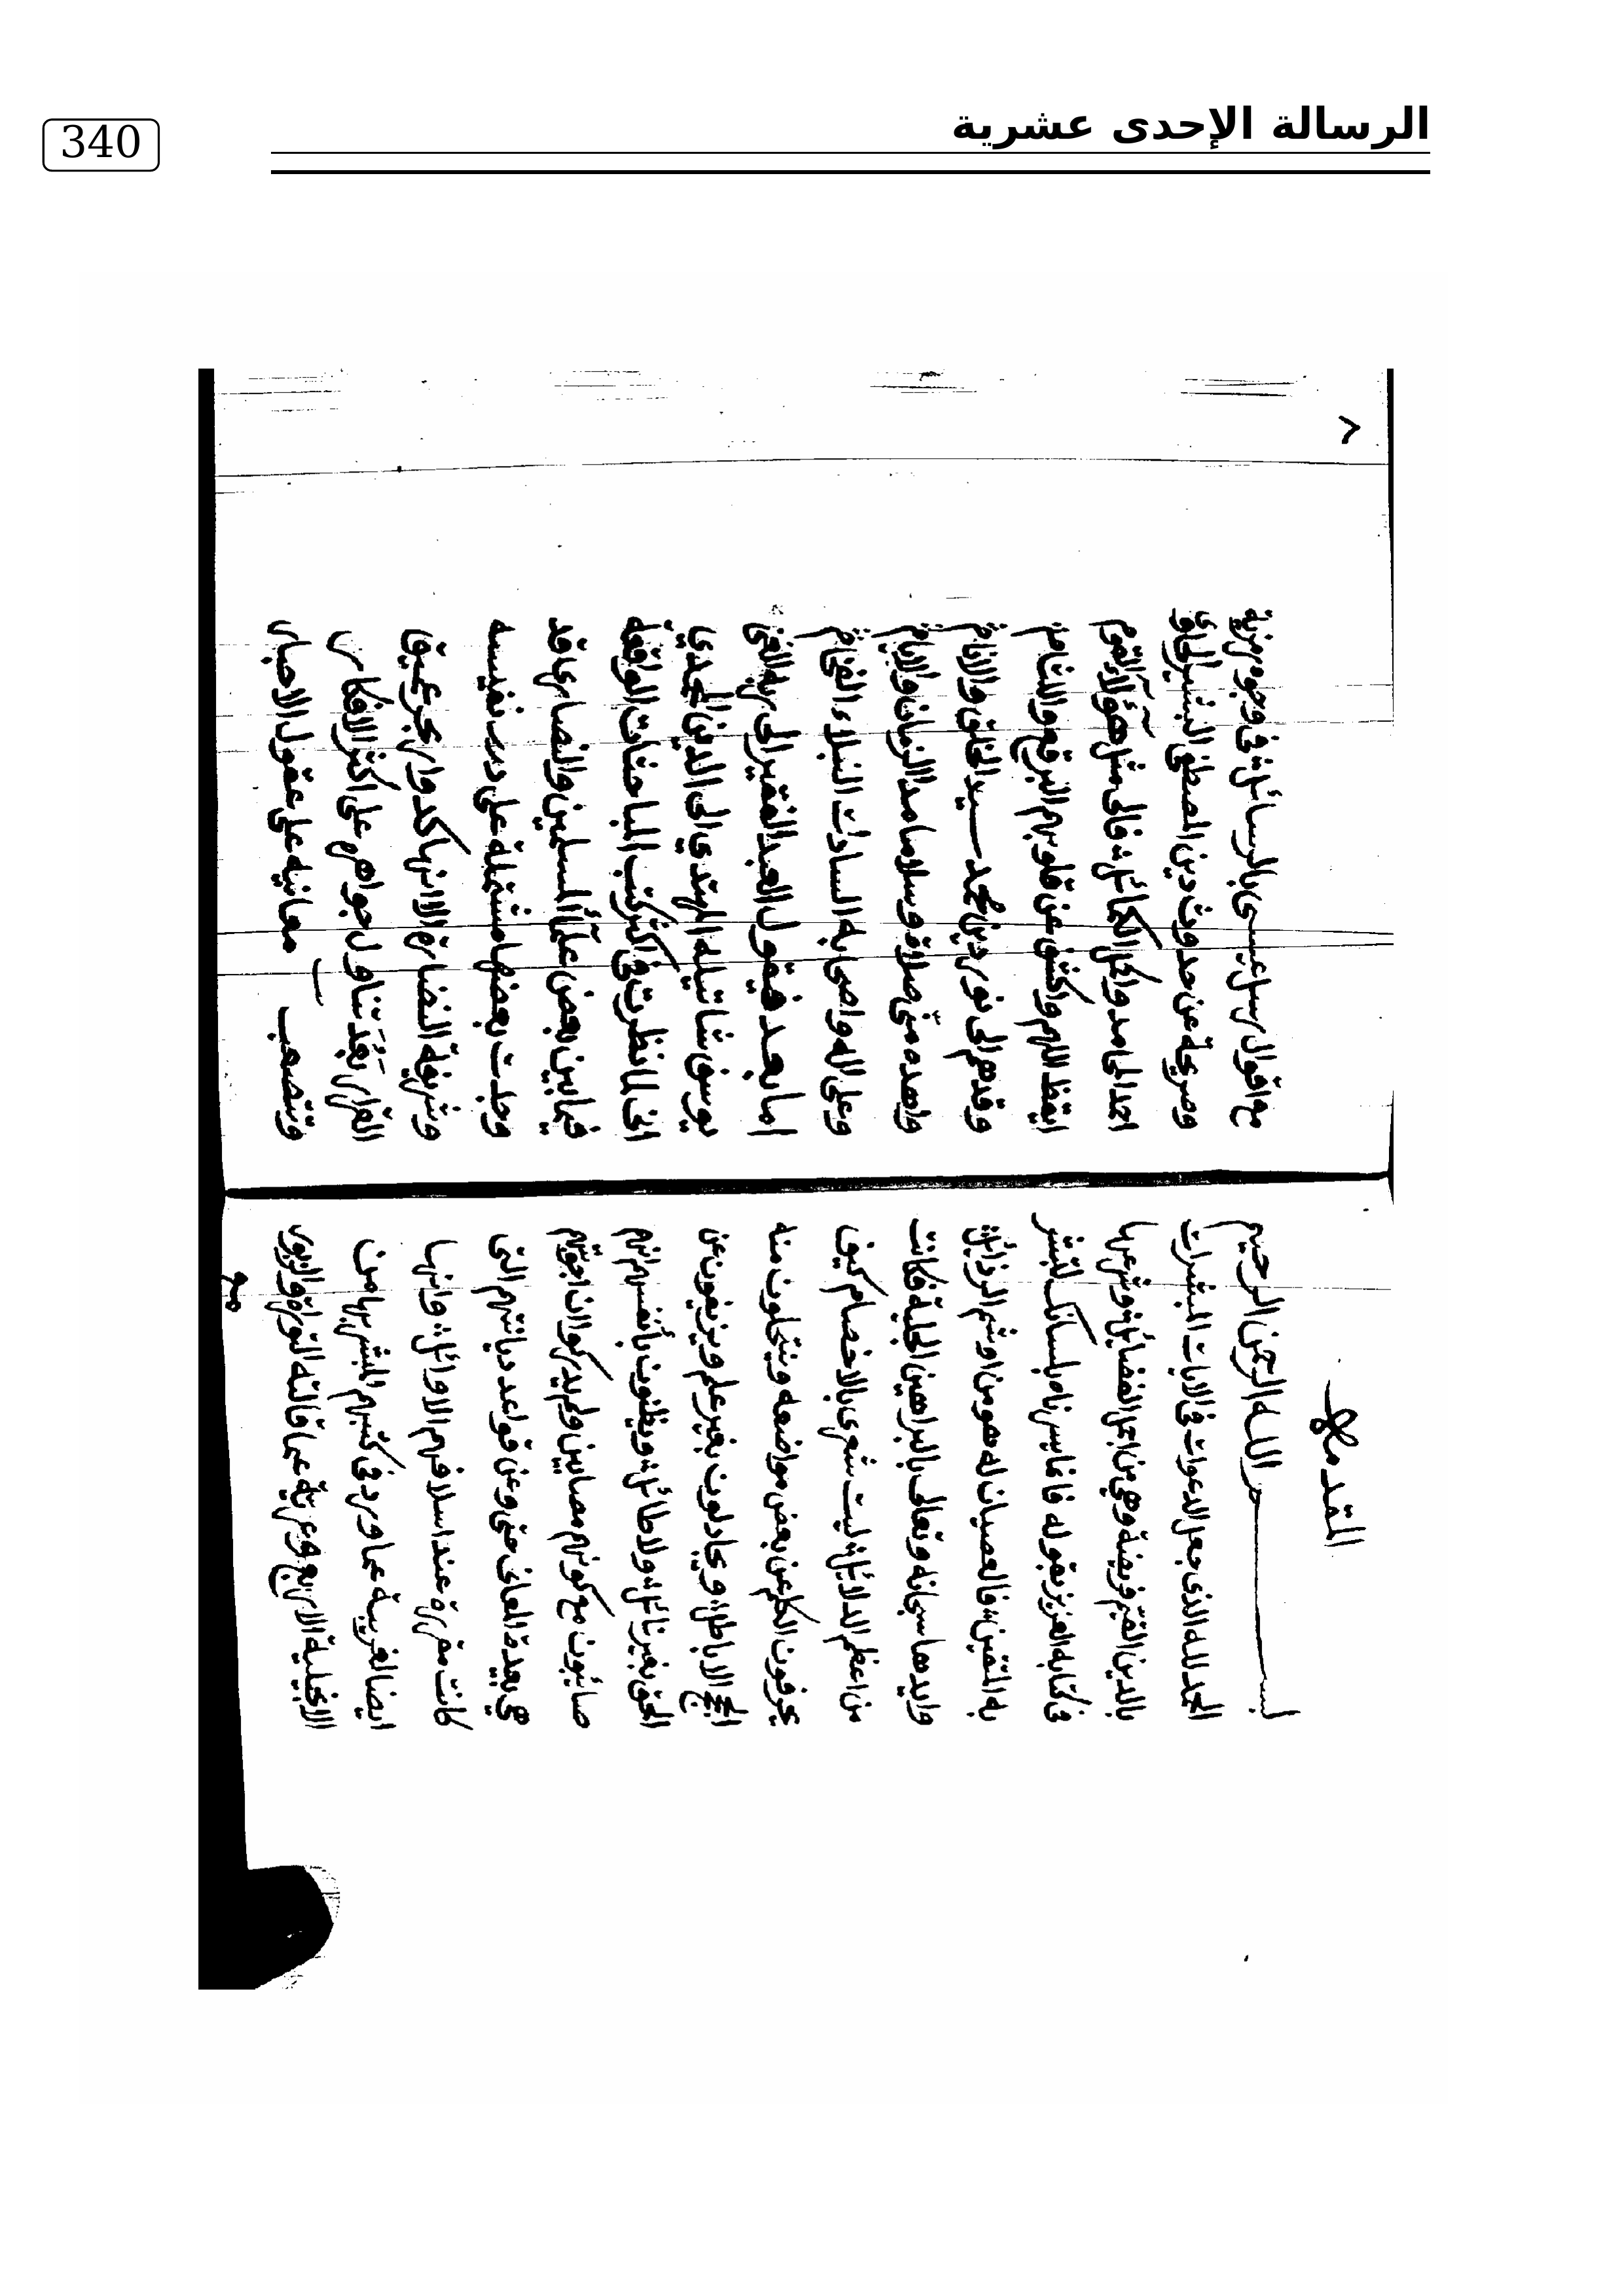 الرسالة الإحدى عشرية
340
المقدمه
بسم الله الرحمن الرحيم
الحمد لله الذى جعل الدعوات فى الآيات المبشرات
بالدين القيم فريضة وهي من اجل الفضائل وشرعها
فى كتابه العزيز بقوله فانما يسرناه بلسانك لتبشر
به المتقين فالعصيان له هو من اوشم الرذائل
وايدها سبحانه وتعالى بالبراهين الجلية فكانت
من اعظم الدلائل ليت شعرى بالاخصام كيف
يحرفون الكلم عن بعض مواضعه وينتحلون منه
الحجج الاباطل ويجادلون بغير علم ويزيغون عن
الحق بغير نائل ولا طائل ويظنون بأنفسهم انهم
صائبون مع كونهم مصابين ولم يدركوا الان اجوبتهم
هي بعيدة المعانى حتى وعن قواعد ديانتهم التى
كانت مقررة عند اسلافهم الاوائل وانها
ايضا لغريبة عما ورد فى كتبهم المبشر بها من
الانجيلية الاربع وعرية عما قالته التوراة والزبور
٢
مع اقوال رسل عيسى بالرسائل فى وجوه مزية
وصريحة عن حدوث دين المصطفى البشير
احد المحامد واكمل الكمائل فالى مثل هؤلاء القوم
ايقظ اللهم واكشف عن قلوبهم البرقع واللثام
وقدهم الى نور دين محمد سيد الخلق والانام
واهده منى صلاة وسلاما مدا الزمان والايام
وعلى اله واصحابه السادات النبلاء الفخام
اما بعد فيقول العبد الفقير الى ربه الغنى
يوسف المهتدي الى الدين المحمدي
انى لما نظرت فى اكثر كتب المباحثات الواقعة
فيما بين بعض علمآء المسلمين والنصارى قد
وجدت بعضها مشتملة على درر نفيسه
وشريفة النضارة الا انها كدوار بحر عميق
القرار بَعُدَ تناول جواهره على اكثر الافكار
وتصعب معانيه على عقول الاحبار